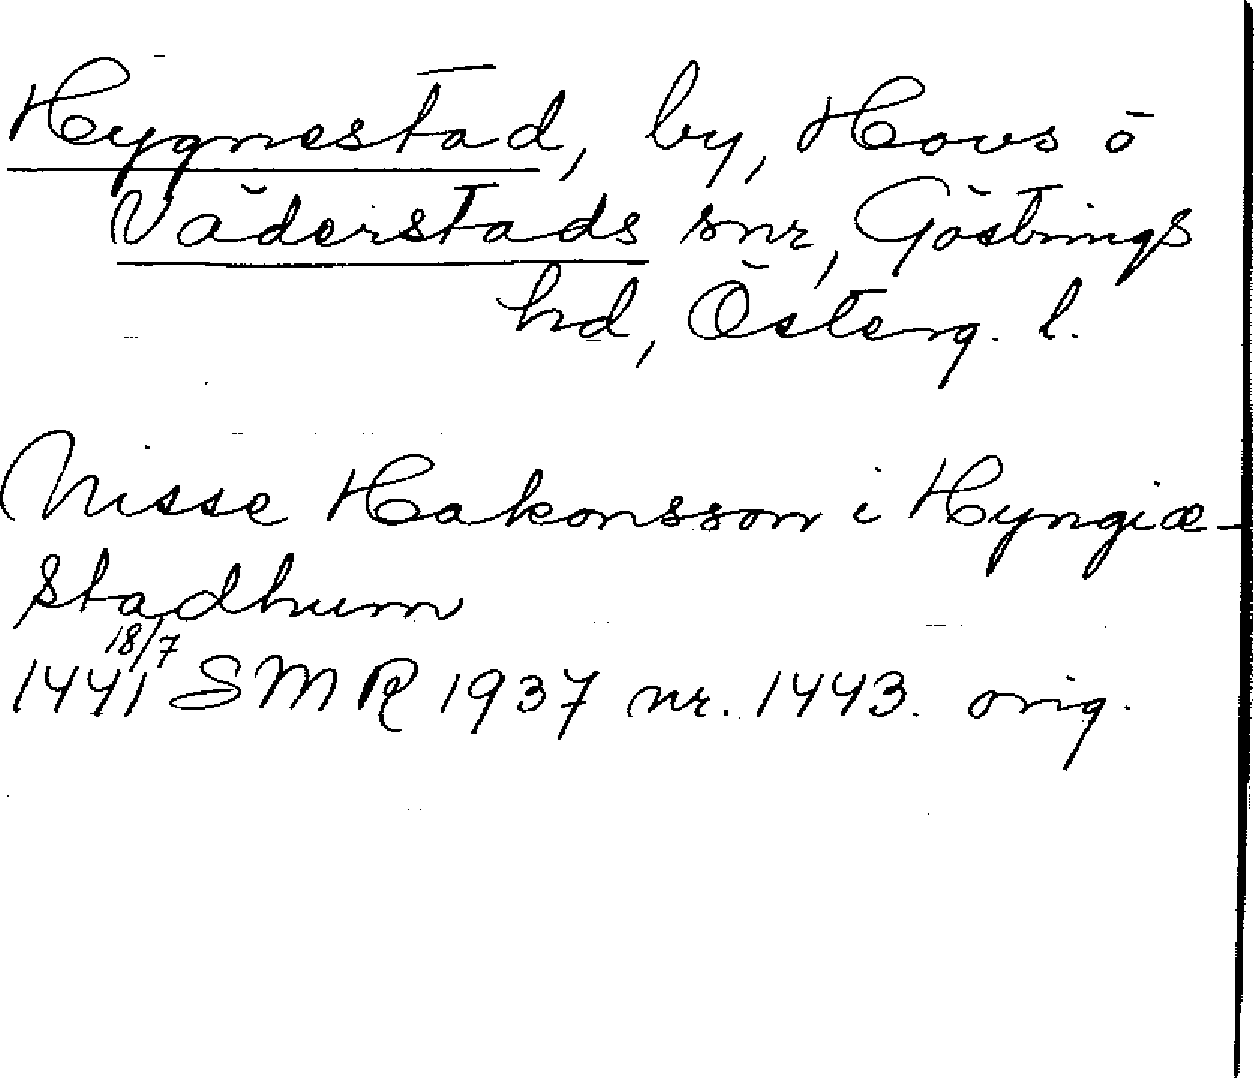 Hygnestad, by, Hovs o
Väderstads snr, Göstrings
hd, Österg. l.
Nisse Hakonsson i Hyngiæ-
stadhum
1441 18/7 SMR 1937 nr. 1443. orig.